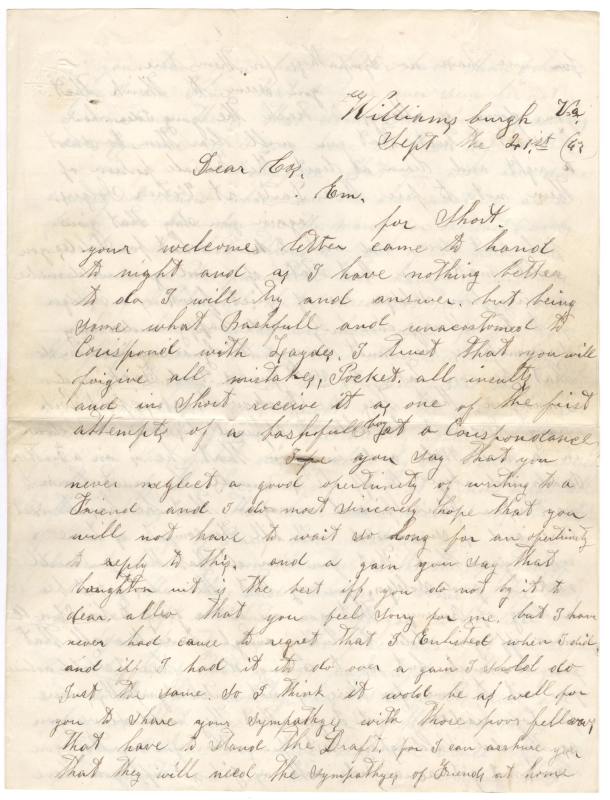 Williamsburgh Va.
Sept the 21.st / 62
Dear Coz.
Em.
for Short.
your welcome letter came to hand
to night and as I have nothing better
to do I will try and answer. but being
some what Bashfull and unacostomed to
Corispond with Laydes. I trust that you will
forgive all mistakes, Pocket. all insults
and in short receive it as one of the first
attempts of a bashfull boy at a Corespondance
you say that you
never neglect a good opertunity of writing to a
Friend and I do most sincerely hope that you
will not have to wait so long for an opertunity
to reply to this. and a gain you say that
boughton wit is the best iff you do not by it to
dear. allso that you feel sorry for me. but I have
never had cause to regret that I Enlisted when I did
and iff I had it to do over a gain I sould do
Just the same. so I think it wold be as well for
you to share your sympathys with those poor fellows
that have to stand the Draft. for I can asshure you
that they will need the sympathys of Friends at home